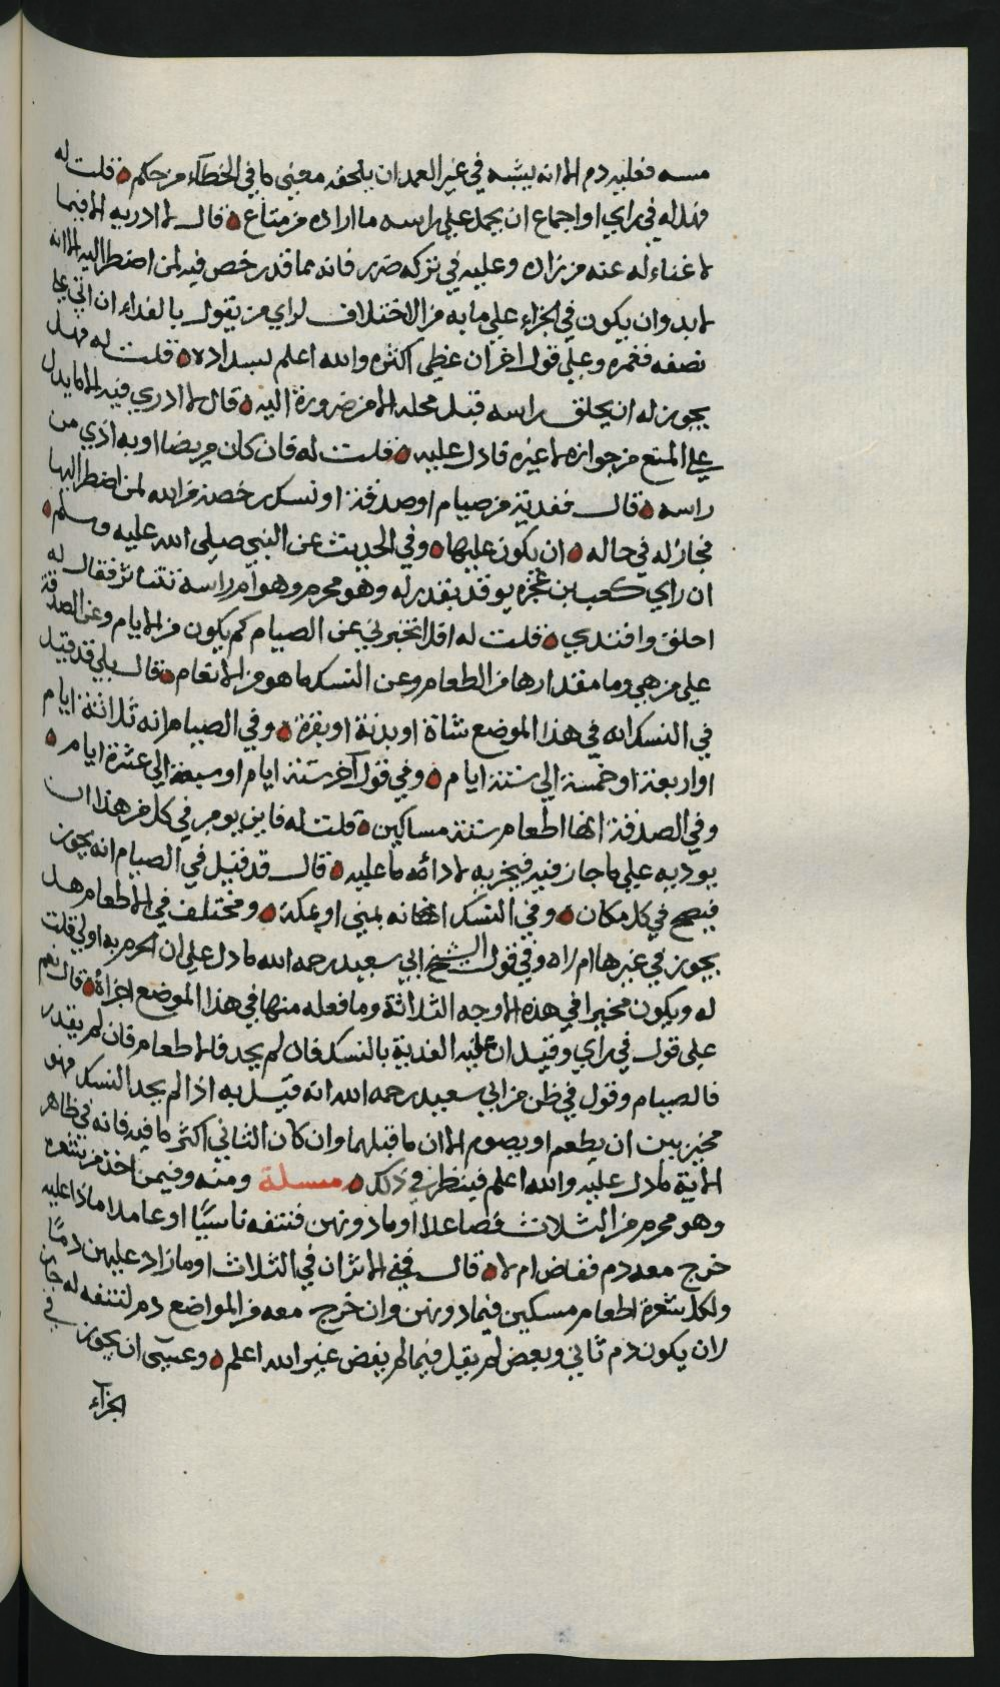 مسه فعليه دم الا انه يشبه في غير العمد ان يلحقه معنى ما في الخطآء من حكم قلت له
فهل له في راي او اجماع ان يحمل على راسه ما اراده من متاع قال لا ادريه الا فيما
لا غناء له عنه من زاده وعليه في تركه ضرر فانه مما قد رخص فيه لمن اضطر اليه الا انه
لا بد وان يكون في الجزاء على ما به من الاختلاف لراي من يقول بالفداء ان اتى على
نصفه فغمره وعلى قول اخر ان غطى اكثره والله اعلم بسداده قلت له فهل
يجوز له ان يحلق راسه قبل محله الا من ضرورة اليه قال لا ادري فيه الا ما يدل
على المنع من جوازه لا غيره قادل عليه قلت له فان كان مريضا او به اذي من
راسه قال ففدية من صيام او صدقة او نسك رخصة من الله لمن اضطر اليها
فجاز له في حاله ان يكون عليها وفي الحديث عن النبي صلى الله عليه وسلم
ان راي كعب بن عجزه يوقد بقدر له وهو محرم وهوام راسه تتناثر فقال له
احلق وافتدي قلت له افلا تخبرني عن الصيام كم يكون من الايام وعن الصدقة
على من هي وما مقدارها من الطعام وعن النسك ما هو من الانعام قال بلى قد قيل
في النسك انه في هذا الموضع شاة او بدنة او بقرة وفي الصيام انه ثلاثة ايام
او اربعة او خمسة الى ستة ايام وفي قول آخر ستة ايام او سبعة الى عشرة ايام
وفي الصدقة انها اطعام ستة مساكين قلت له فاين يومر في كل من هذا ان
يوديه على ما جاز فيه فيجزيه لادائه ما عليه قال قد قيل في الصيام انه يجوز
فيصح في كل مكان وفي النسك انه بمنى او بمكة ومختلف في الاطعام هل
يجوز في غيرها ام لا وفي قول الشيخ ابي سعيد رحمه الله ما دل على ان الحرم به اولى قلت
له ويكون مخيرا في هذه الاوجه الثلاثة وما فعله منها في هذا الموضع اجزاه قال نعم
على قول في راي وقيل ان عليه الفدية بالنسك فان لم يجد فالاطعام فان لم يقدر
فالصيام وقول في ظن من ابي سعيد رحمه الله انه قيل به اذا لم يجد النسك فهو
مخير بين ان يطعم او يصوم الا ان ما قبلهما وان كان الثاني اكثر ما فيه فانه في ظاهر
الاية ما دل عليه والله اعلم فينظر في ذلك مسلة ومنه وفيمن اخذ من شعره
وهو محرم من الثلاث فصاعدا او ما دونهن فنتفه ناسيًا او عامدا ماذا عليه
خرج معه دم ففاض ام لا قال ففي الاثر ان في الثلاث او ما زاد عليهن دمًا
ولكل شعرة اطعام مسكين فيما دونهن وان خرج معه من المواضع دم لنتفه له جاز
لان يكون دم ثاني وبعض لم يقل فيما لم يفض غير الله اعلم وعسى ان يجوز في
الجزآء